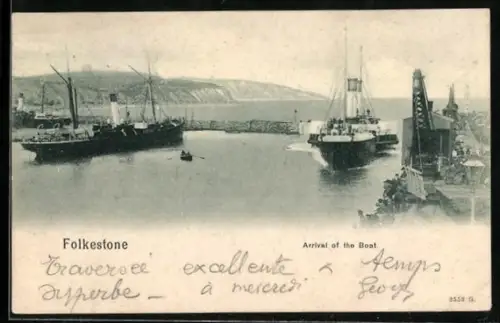 Folkestone
Arrival of the Boat
Traversée excellente & temps
superbe — à mercredi
Georg
8553 G.